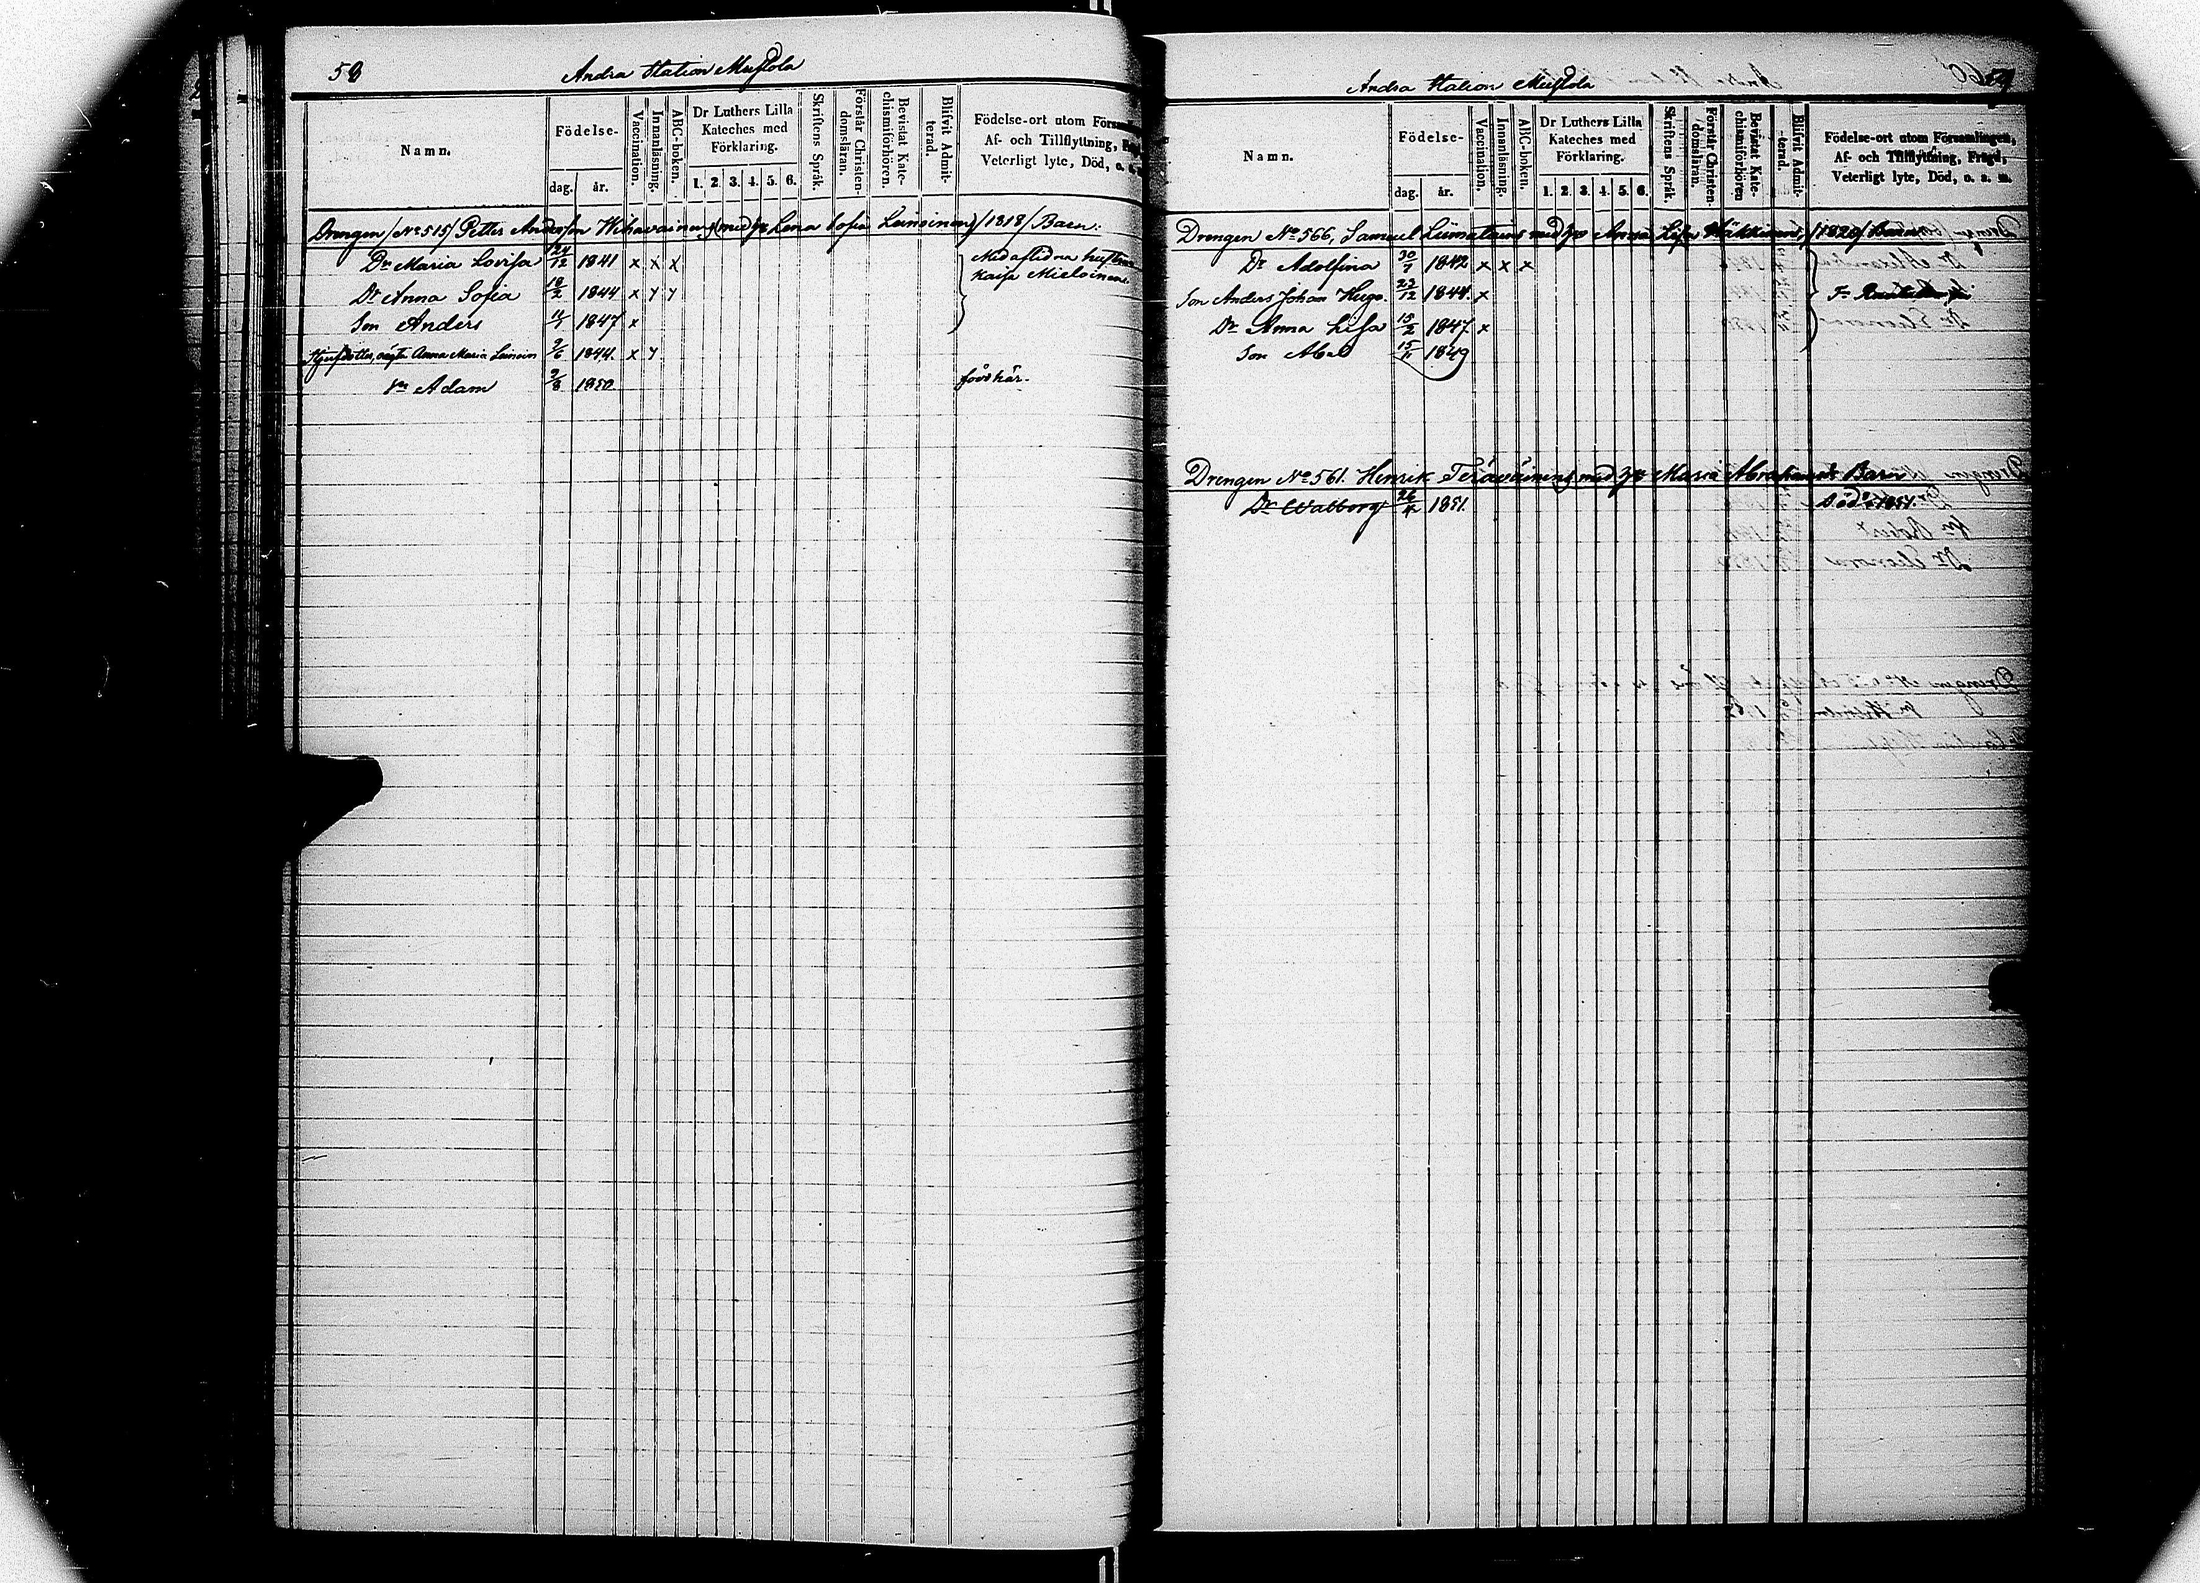 58
Andra Station Mustola
Namn.
Födelse-
dag.
år.
Vaccination.
Innanläsning.
ABC-boken.
Dr Luthers Lilla
Kateches med
Förklaring.
1. 2. 3. 4. 5. 6.
Skriftens Språk.
Förstår Christen-
domsläran.
Bevistat Kate-
chismiförhören.
Blifvit Admit-
terad.
Födelse-ort utom
Af- och Tillflyttning,
Veterligt lyte, Död, o.
Drengen /No 515/ Petter Andersson Wihavainens med Lena Sofia Lumoinen /1818/ Barn.
Dr Maria Lovisa 24/12 1841 x x x Med aflidna hustrun
Kaisa Mieloinen
Dr Anna Sofia 18/2 1844 x y y
Son Anders 11/7 1847 x
Anna Maria 9/6 1844. x y
Sn Adam 9/8 1850 förs här.
59
Andra Station Mustola
Namn.
Födelse-
dag.
år.
Vaccination.
Innanläsning.
ABC-boken.
Dr Luthers Lilla
Kateches med
Förklaring.
1. 2. 3. 4. 5. 6.
Skriftens Språk.
Förstår Christen-
domsläran.
Bevistat Kate-
chismiförhören
Blifvit Admit-
terad.
Födelse-ort utom Församlingen,
Af- och Tillflyttning, Frägd,
Veterligt lyte, Död, o. s. m.
Drengen No 566, Samuel med Anna Lisa Häkkinens, /1820/ Barn
Dr Adolfina 30/7 1842 x x x
Son Anders Johan Hugo. 23/12 1844. x
Dr Anna Lisa 15/2 1847. x
Son Abel 15/11 1849
Drengen No 561. Henrik Teräväinens med Maria Abrahamsdr Barn
Dr Walborg 26/4 1851. Död 1851.